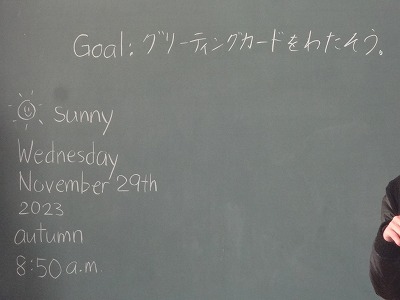 Goal: グリーティングカードをわたそう。
Sunny
Wednesday
November 29th
2023
autumn
8:50 a.m.